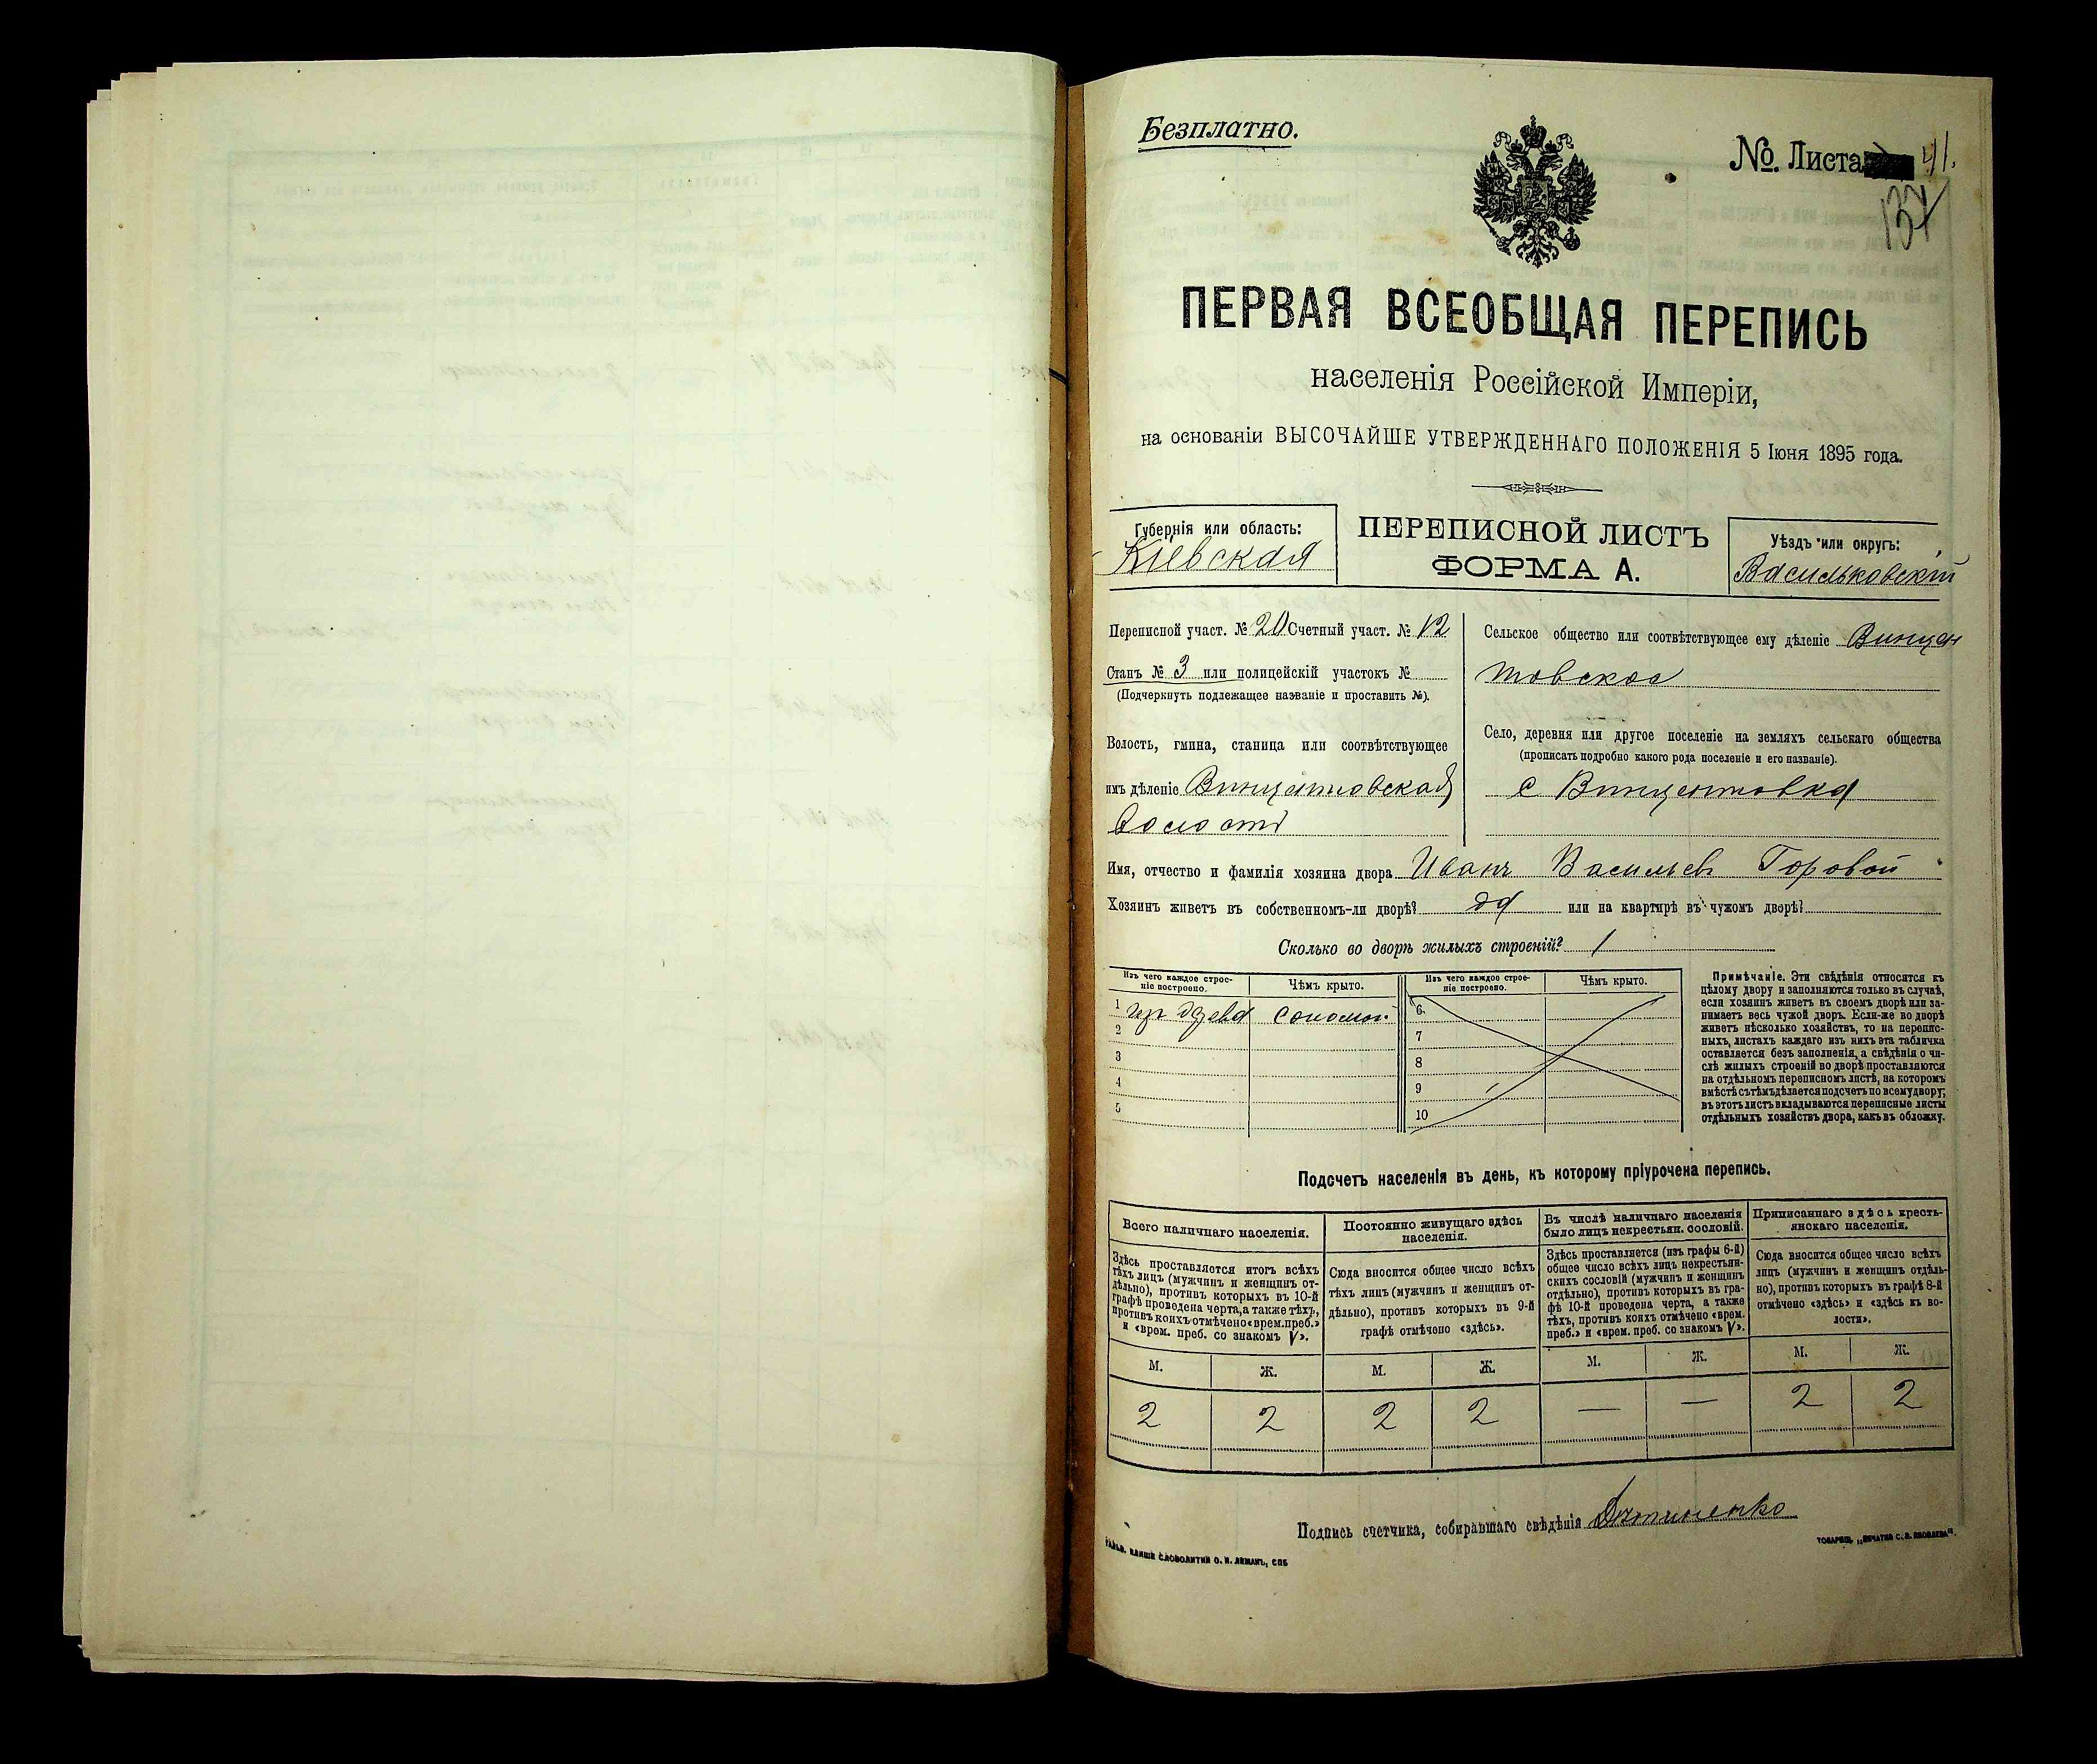 Безплатно.
№. Листа 41.
137
ПЕРВАЯ ВСЕОБЩАЯ ПЕРЕПИСЬ
населенія Россійской Имперіи,
на основаніи ВЫСОЧАЙШЕ УТВЕРЖДЕННАГО ПОЛОЖЕНІЯ 5 Іюня 1895 года.
Губернія или область:
Кіевская
ПЕРЕПИСНОЙ ЛИСТЪ
ФОРМА А.
Уѣздъ или округъ:
Васильковскій
Переписной участ. № 20 Счетный участ. № 12
Станъ № 3 или полицейскій участокъ №
(Подчеркнуть подлежащее названіе и проставить №).
Волость, гмина, станица или соотвѣтствующее
имъ дѣленіе Винцентовская
волость
Сельское общество или соотвѣтствующее ему дѣленіе Винцен
товское
Село, деревня или другое поселеніе на земляхъ сельскаго общества
(прописать подробно какого рода поселеніе и его названіе).
с Винцентовка
Имя, отчество и фамилія хозяина двора Иванъ Васильевъ Горовой
Хозяинъ живетъ въ собственномъ-ли дворѣ? да или на квартирѣ въ чужомъ дворѣ?
Сколько во дворѣ жилыхъ строеній? 1
Изъ чего каждое строе-
ніе построено.
Чѣмъ крыто.
Изъ чего каждое строе-
ніе построено.
Чѣмъ крыто.
1 изъ древа соломой
2
3
4
5
6
7
8
9
10
Примѣчаніе. Эти свѣдѣнія относятся къ
цѣлому двору и заполняются только въ случаѣ,
если хозяинъ живетъ въ своемъ дворѣ или за-
нимаетъ весь чужой дворъ. Если-же во дворѣ
живетъ нѣсколько хозяйствъ, то на перепис-
ныхъ листахъ каждаго изъ нихъ эта табличка
оставляется безъ заполненія, а свѣдѣнія о чи-
слѣ жилыхъ строеній во дворѣ проставляются
на отдѣльномъ переписномъ листѣ, на которомъ
вмѣстѣ съ тѣмъ дѣлается подсчетъ по всему двору;
въ этотъ листъ вкладываются переписные листы
отдѣльныхъ хозяйствъ двора, какъ въ обложку.
Подсчетъ населенія въ день, къ которому пріурочена перепись.
Всего наличнаго населенія.
Здѣсь проставляется итогъ всѣхъ
тѣхъ лицъ (мужчинъ и женщинъ от-
дѣльно), противъ которыхъ въ 10-й
графѣ проведена черта, а также тѣхъ,
противъ коихъ отмѣчено «врем. преб.»
и «врем. преб. со знакомъ V».
Постоянно живущаго здѣсь
населенія.
Сюда вносится общее число всѣхъ
тѣхъ лицъ (мужчинъ и женщинъ от-
дѣльно), противъ которыхъ въ 9-й
графѣ отмѣчено «здѣсь».
Въ числѣ наличнаго населенія
было лицъ некрестьян. сословій.
Здѣсь проставляется (изъ графы 6-й)
общее число всѣхъ лицъ некрестьян-
скихъ сословій (мужчинъ и женщинъ
отдѣльно), противъ которыхъ въ гра-
фѣ 10-й проведена черта, а также
тѣхъ, противъ коихъ отмѣчено «врем.
преб.» и «врем. преб. со знакомъ V».
Приписаннаго здѣсь кресть-
янскаго населенія.
Сюда вносится общее число всѣхъ
лицъ (мужчинъ и женщинъ отдѣль-
но), противъ которыхъ въ графѣ 8-й
отмѣчено «здѣсь» и «здѣсь къ во-
лости».
М. Ж. М. Ж. М. Ж. М. Ж.
2 2 2 2 — — 2 2
Подпись счетчика, собиравшаго свѣдѣнія
СЛОВОЛИТНИ О. И. ЛЕМАНЪ, СПБ
ТОВАРИЩ. „ПЕЧАТНЯ С. П. ЯКОВЛЕВА“.